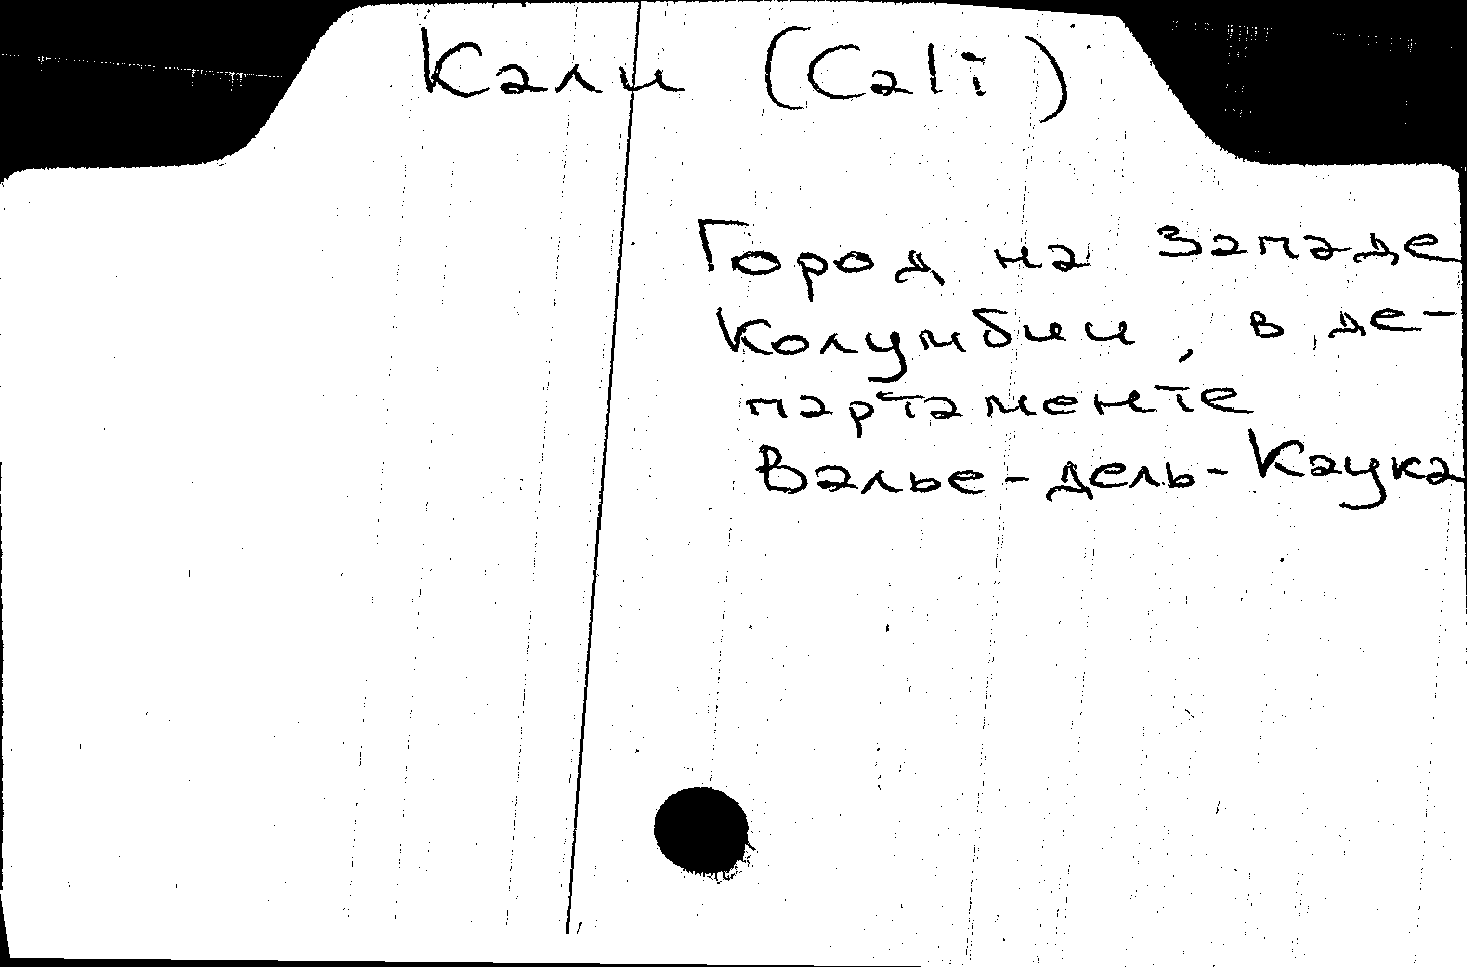 Кали (Cali)
Город на западе
Колумбии, в де-
партаменте
Валье-дель-Каука